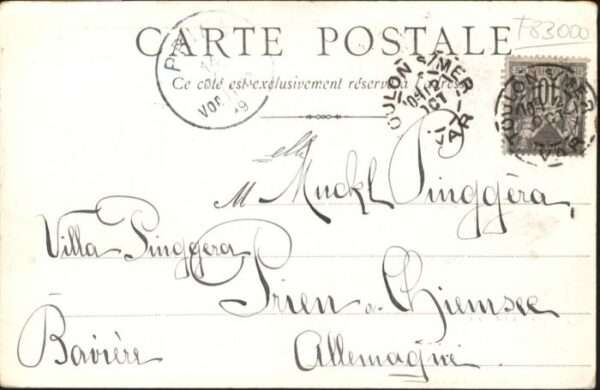 T83000
CARTE POSTALE
Ce côté est exclusivement réservé à l'adresse
TOULON S/MER
OCT
VAR
TOULON S/MER
VAR
VOR
M elle Muckl Pinggéra,
Villa Pinggera
Prien a. Chiemsee
Bavière Allemagne